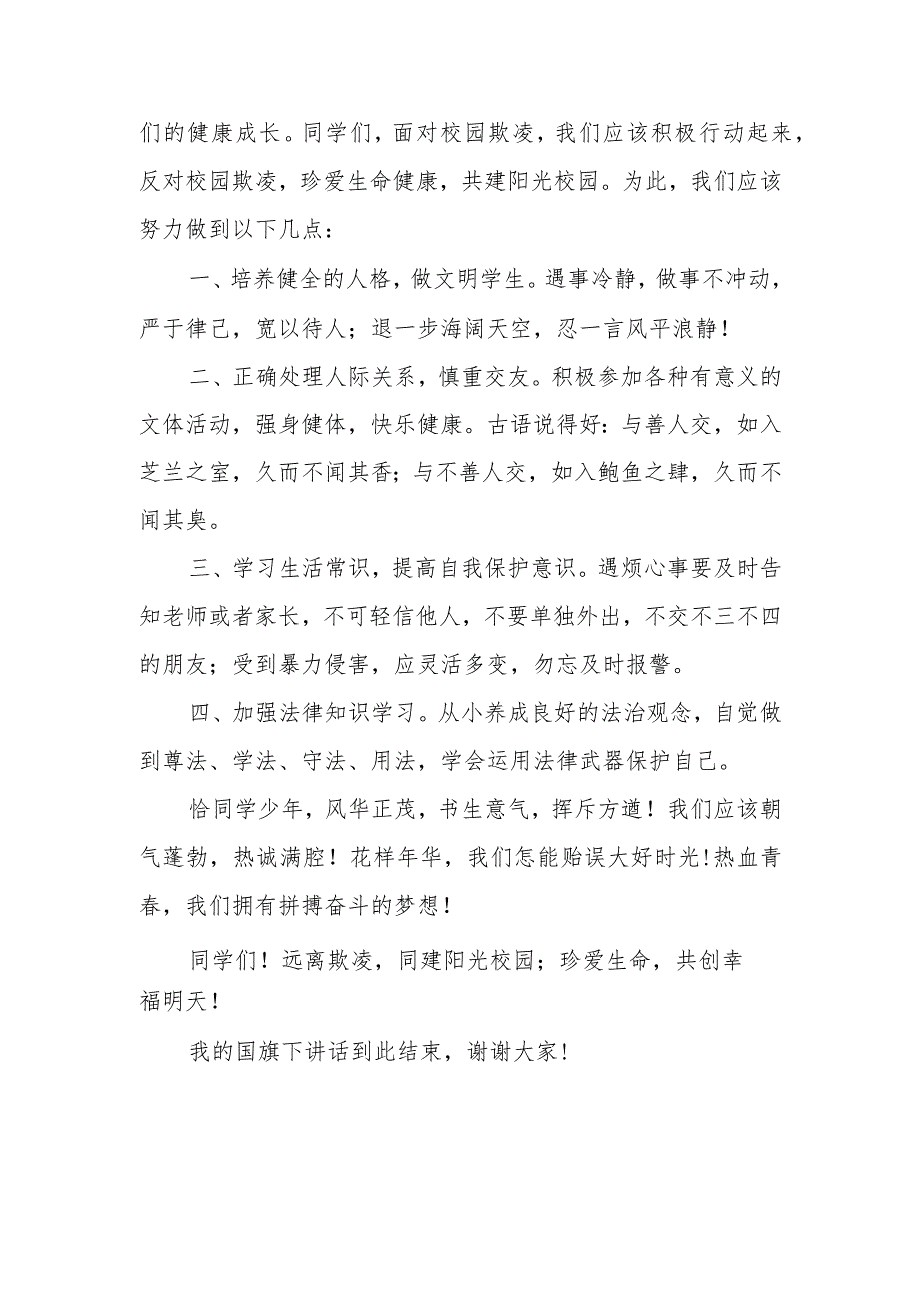 们的健康成长。同学们，面对校园欺凌，我们应该积极行动起来，
反对校园欺凌，珍爱生命健康，共建阳光校园。为此，我们应该
努力做到以下几点：
一、培养健全的人格，做文明学生。遇事冷静，做事不冲动，
严于律己，宽以待人；退一步海阔天空，忍一言风平浪静！
二、正确处理人际关系，慎重交友。积极参加各种有意义的
文体活动，强身健体，快乐健康。古语说得好：与善人交，如入
芝兰之室，久而不闻其香；与不善人交，如入鲍鱼之肆，久而不
闻其臭。
三、学习生活常识，提高自我保护意识。遇烦心事要及时告
知老师或者家长，不可轻信他人，不要单独外出，不交不三不四
的朋友；受到暴力侵害，应灵活多变，勿忘及时报警。
四、加强法律知识学习。从小养成良好的法治观念，自觉做
到尊法、学法、守法、用法，学会运用法律武器保护自己。
恰同学少年，风华正茂，书生意气，挥斥方遒！我们应该朝
气蓬勃，热诚满腔！花样年华，我们怎能贻误大好时光!热血青
春，我们拥有拼搏奋斗的梦想！
同学们！远离欺凌，同建阳光校园；珍爱生命，共创幸
福明天！
我的国旗下讲话到此结束，谢谢大家!